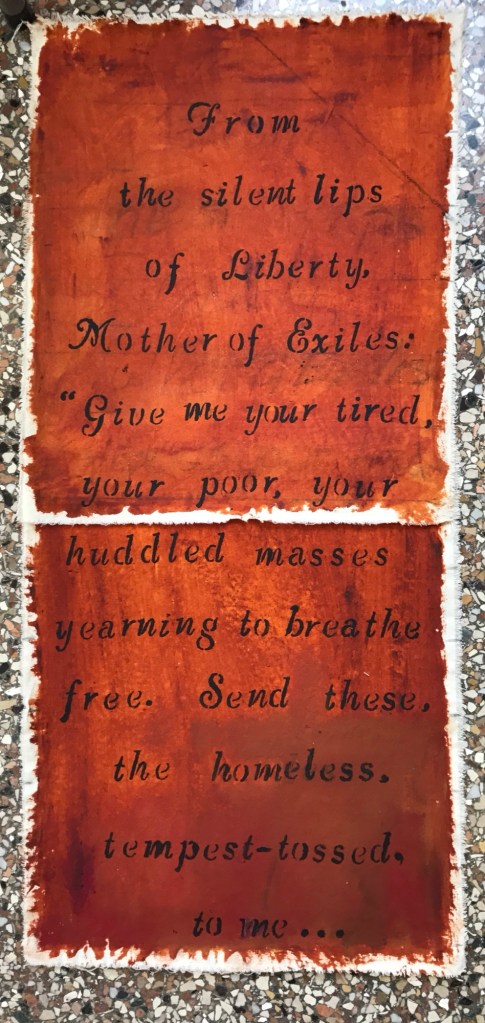 From
the silent lips
of Liberty,
Mother of Exiles:
"Give me your tired,
your poor, your
huddled masses
yearning to breathe
free. Send these,
the homeless,
tempest-tossed,
to me...